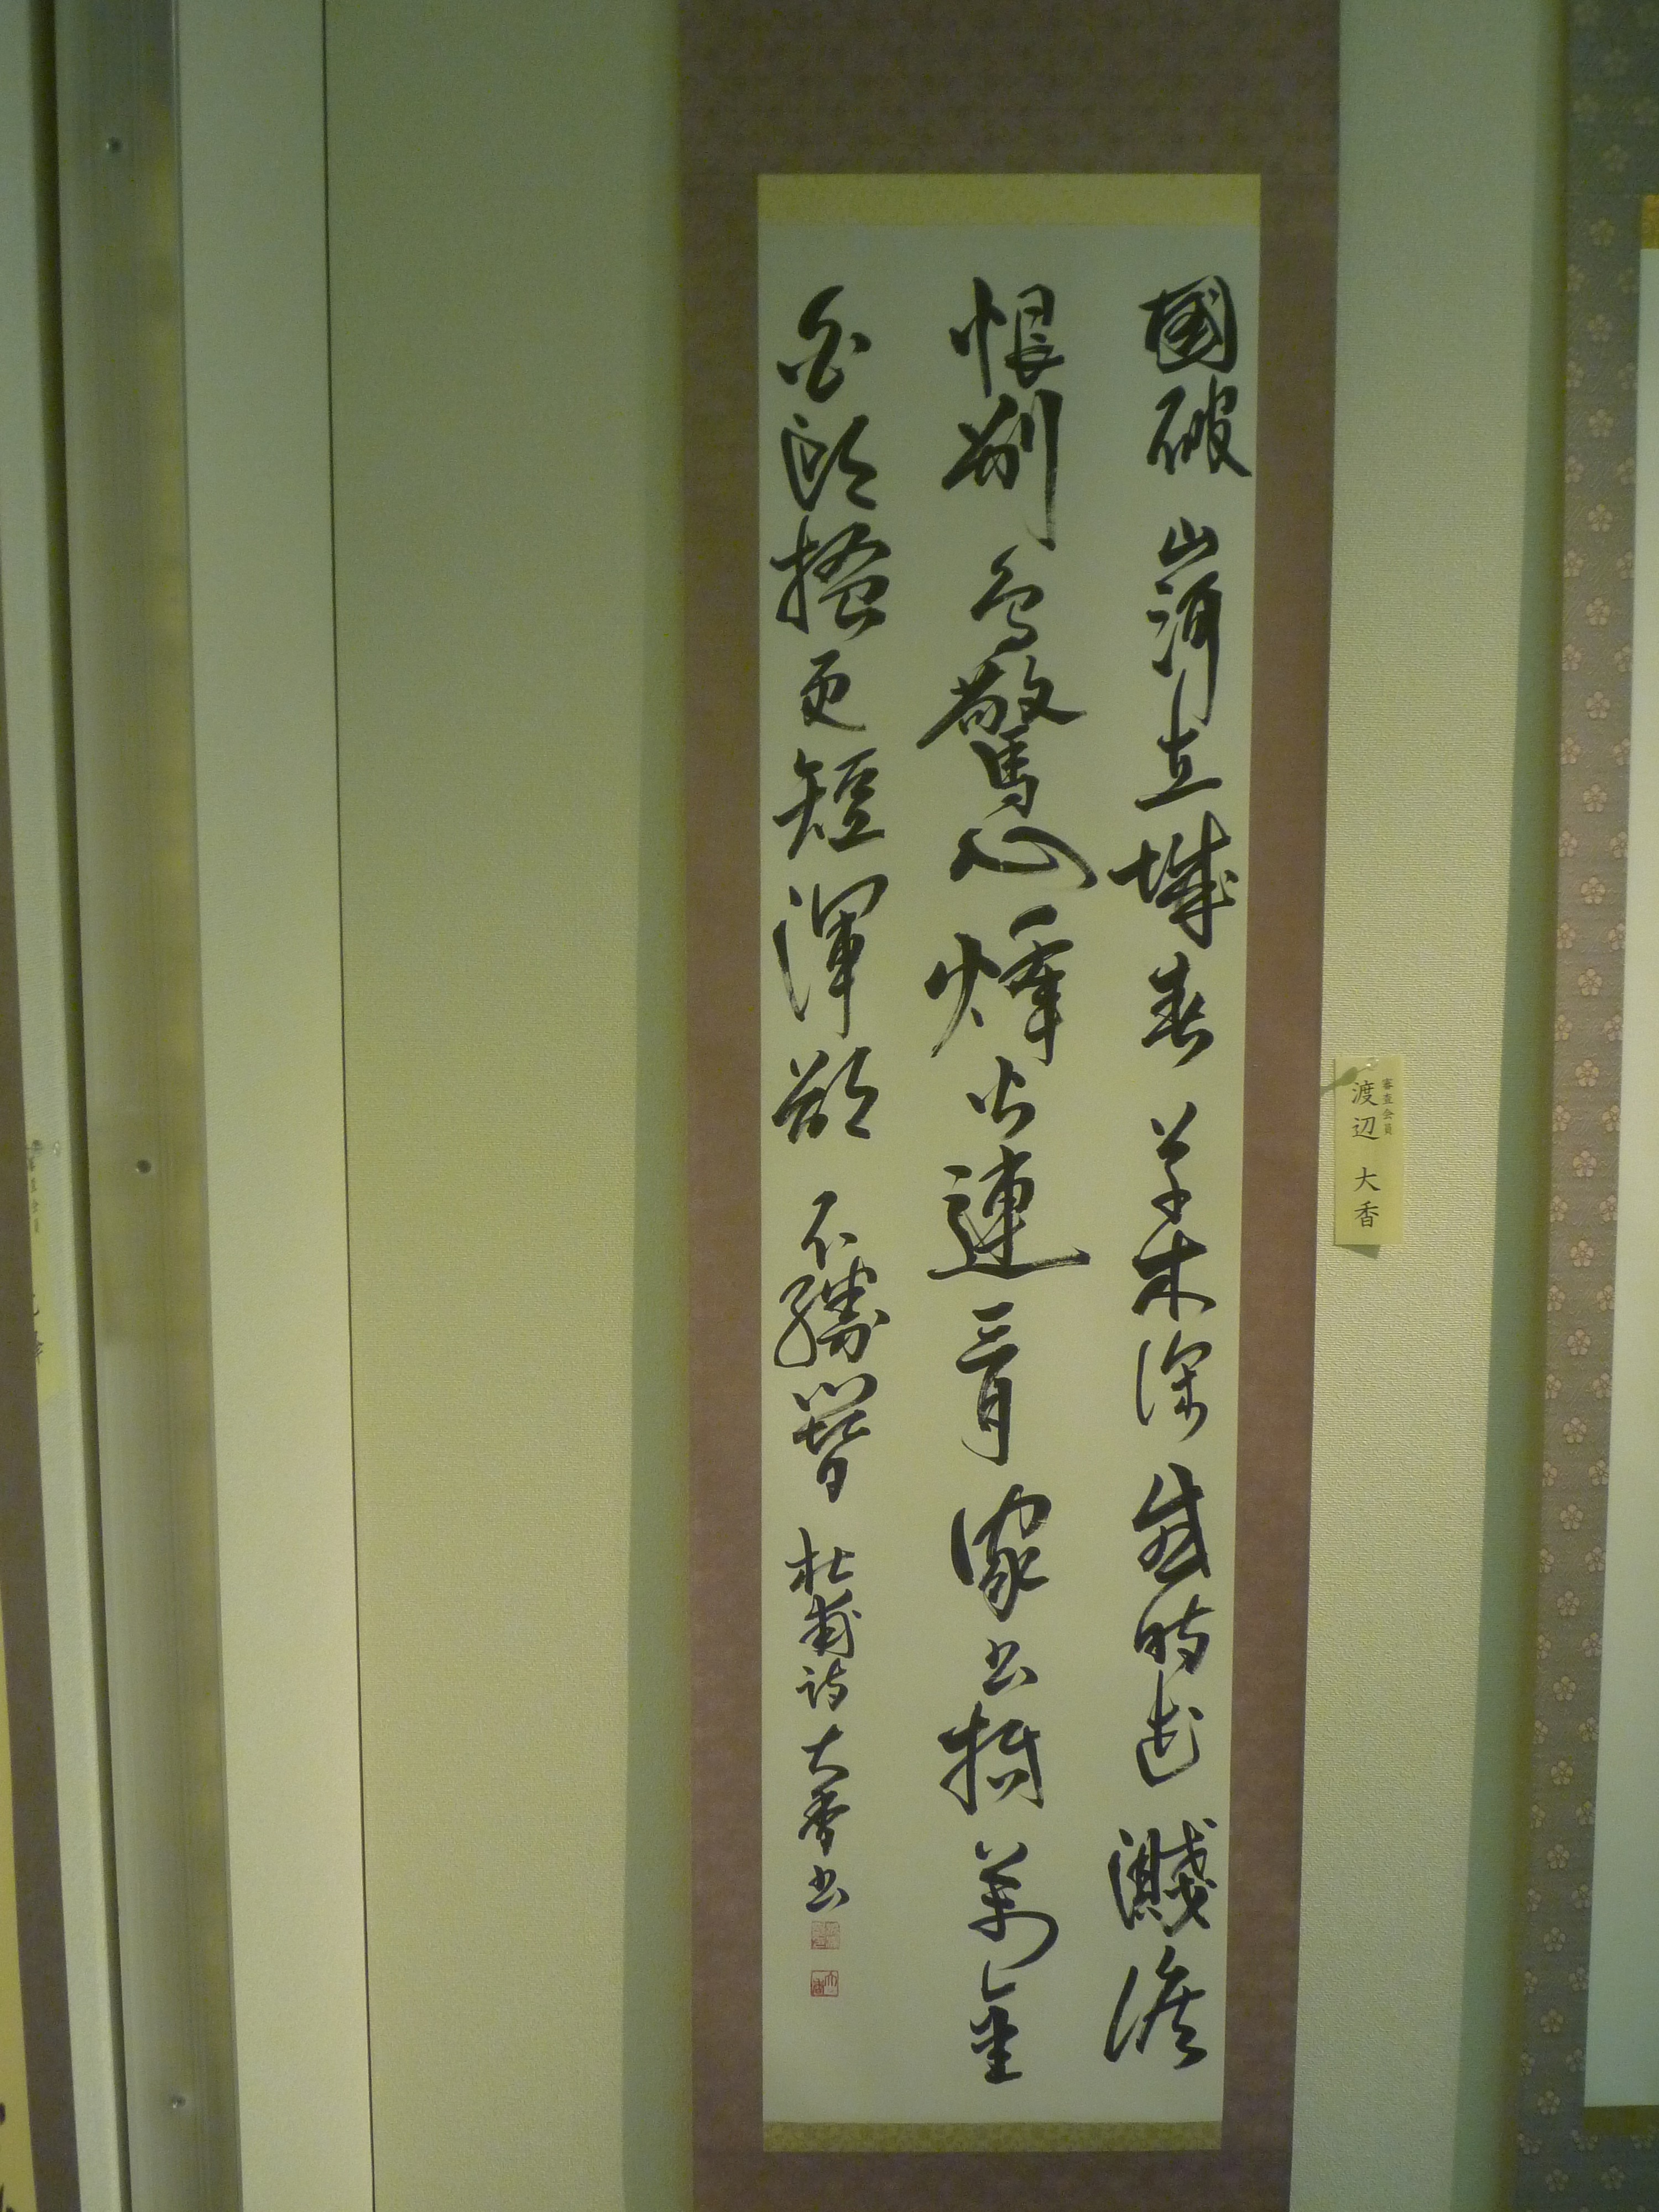 國破山河在城春草木深感時花濺淚
恨別鳥驚心烽火連三月家書抵萬金
白頭搔更短渾欲不勝簪 杜甫詩 大香書
審査会員
渡辺 大香